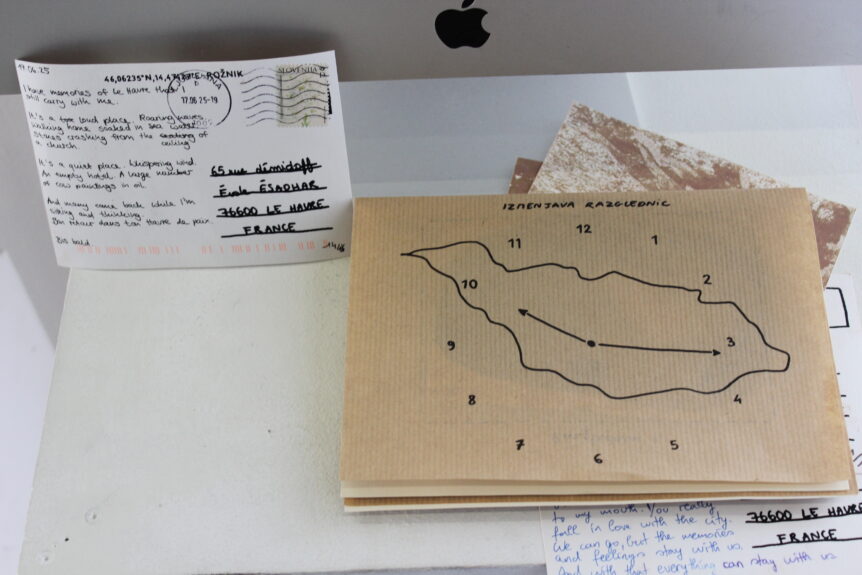 17.06.25
46,06235°N, ROŽNIK
I have memories of Le Havre that I
still carry with me.
It's a loud place. Roaring waves.
Walking home soaked in sea water.
Stones crashing from the ceiling of
a church.
It's a quiet place. Whispering wind.
An empty hotel. A large number
of cow paintings in oil.
And many come back while I'm
sitting and thinking.
Bon retour dans ton Havre de paix
Bis bald
17.06 25-19
SLOVENIJA
65 rue démidoff
École ÉSADHAR
76600 LE HAVRE
FRANCE
IZMENJAVA RAZGLEDNIC
12
11
1
10
2
9
3
8
4
7
5
6
to my mouth. You really
fall in love with the city.
We can go, but the memories
and feelings stay with us.
And with that everything can stay with us
76600 LE HAVRE
FRANCE